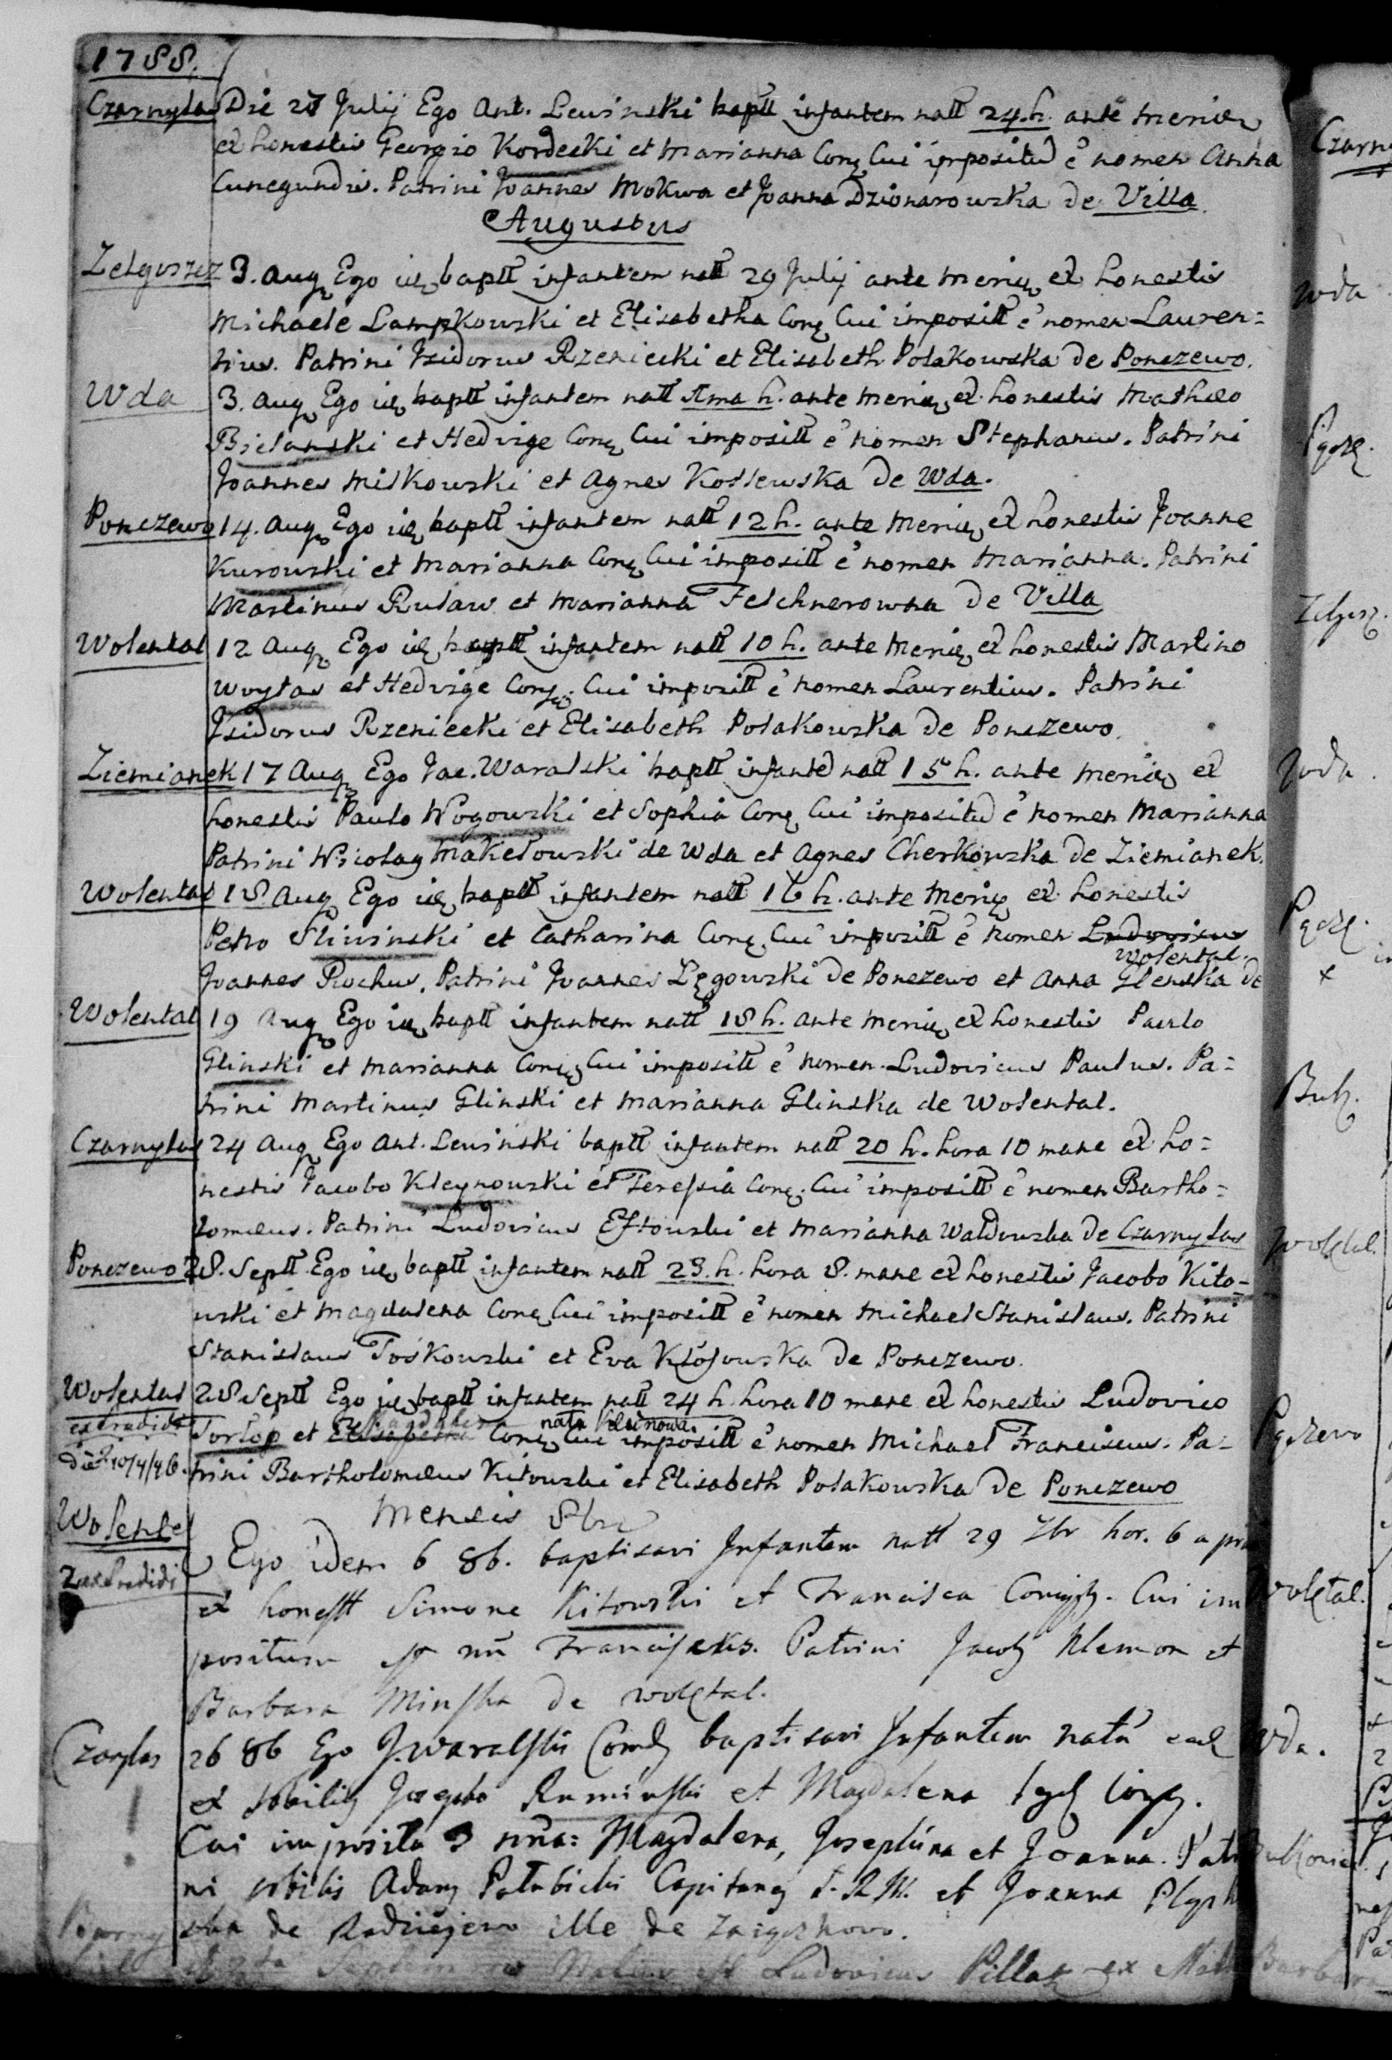 1788.
Czarnylas Die 27 Julij Ego Ant. Lewinski baptt infantem natt 24.h. ante meriđ
ex honestis Georgio Kordecki et Marianna Conꝫ Cui impositũ ẽ nomen Anna
Cunegundis. Patrini Joannes Mokwa et Joanna Dzionarowska de Villa
Augustus
Zelgoszcz 3. Augꝫ Ego idꝫ baptt infantem natt 29 Julij ante meridꝫ ex honestis
Michaele Lampkowski et Elisabetha Conꝫ Cui impositt ẽ nomen Lauren=
tius. Patrini Isidorus Rzeniecki et Elisabeth Polakowska de Ponczewo.
Wda 3. Augꝫ Ego idꝫ baptt infantem natt h. ante meridꝫ ex honestis Mathæo
Bielanski et Hedvige Conꝫ Cui impositt ẽ nomen Stephanus. Patrini
Joannes Milkowski et Agnes Kossewska de Wda.
Ponczewo 14. Augꝫ Ego idꝫ baptt infantem natt 12 h. ante meridꝫ ex honestis Joanne
Kurowski et Marianna Conꝫ Cui impositt ẽ nomen Marianna. Patrini
Martinus Rulaw et Marianna Felchnerowna de Villa
Wolental 12 Augꝫ Ego idꝫ baptt infantem natt 10 h. ante meridꝫ ex honestis Martino
Woytas et Hedvige Conꝫ. Cui impositt ẽ nomen Laurentius. Patrini
Isidorus Rzeniecki et Elisabeth Polakowska de Ponczewo.
Ziemianek 17 Augꝫ Ego Jac. Waralski baptt infantẽ natt 15 h. ante meridꝫ ex
honestis Paulo Wogowski et Sophia Conꝫ Cui impositũ ẽ nomen Marianna
Patrini Nicolaꝰ Makełowski de Wda et Agnes Cherkowska de Ziemianek.
Wolental 18 Augꝫ Ego idꝫ baptt infantem natt 16 h. ante meridꝫ ex honestis
Petro Sliwinski et Catharina Conꝫ Cui impositt ẽ nomen Ludovicus
Wolental.
Joannes Rochus. Patrini Joannes Lęgowski de Ponczewo et Anna Glenska de
Wolental 19 Augꝫ Ego idꝫ baptt infantem natt 18 h. ante meridꝫ ex honestis Paulo
Glinski et Marianna Conꝫ Cui impositt ẽ nomen Ludovicus Paulus. Pa=
trini Martinus Glinski et Marianna Glinska de Wolental.
Czarnylas 24 Augꝫ Ego Ant. Lewinski baptt infantem natt 20 h. hora 10 mane ex ho=
nestis Jacobo Kleynowski et Teresia Conꝫ. Cui impositt ẽ nomen Bartho=
lomæus. Patrini Ludovicus Eftowski et Marianna Waldowska de Czarnylas
Ponczewo 28. Septt Ego idꝫ baptt infantem natt 23. h. hora 8. mane ex honestis Jacobo Kito=
wski et Magdalena Conꝫ Cui impositt ẽ nomen Michael Stanislaus. Patrini
Stanislaus Toskowski et Eva Kłosowska de Ponczewo.
Wolental 28 Septt Ego idꝫ baptt infantem natt 24 h hora 10 mane ex honestis Ludovico
extradidi Magdalena nata
Torłop et Elisabetha Conꝫ Cui impositt ẽ nomen Michael Franciscus. Pa=
die 10/4/46. trini Bartholomæus Kitowski et Elisabeth Polakowska de Ponczewo
Mensis 8bris
Wolental Ego idem 6 8b. baptisavi Infantem natt 29 7br hor. 6 a
extradidi ex honestt Simone Kitowski et Francisca Conjug. Cui im
positum est nn Franciscus. Patrini Jacobꝫ Klemon et
Barbara Minska de Wolętal.
Czarylas 26 8b Ego J. Waralski baptisavi Infantem natũ
ex Nobiliꝫ Josepho Ruminski et Magdalena Conjg.
Cui imposita 3 nña: Magdalena, Josephina et Joanna. Patri
ni Nobilis Adamꝫ Pałubicki Capitaneꝫ S.R.M. et Joanna
ska de Radziejewo ille de
Ludovicus Pillaꝫ ex
Czarny
Wda
Pącz.
Zelgosz.
Wda.
Pącz.
x
Buk.
Wolętal.
Pączewo
Wolętal.
Wda.
Barbara